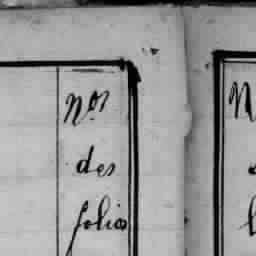 Nos
des
folios
N